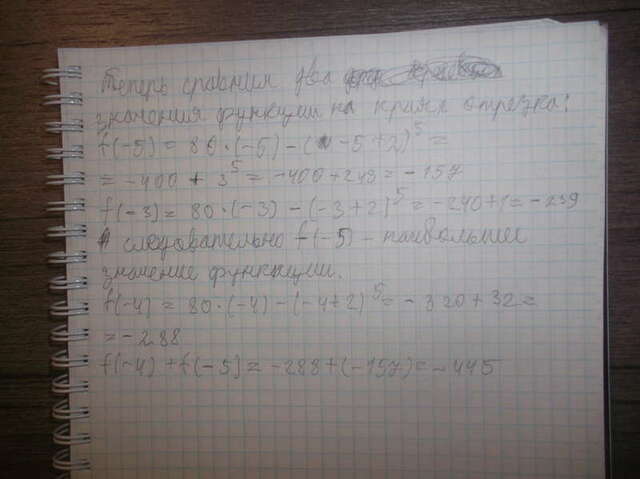 Теперь сравним два
значения функции на краях отрезка:
f(-5) = 80·(-5) - (-5+2)^5 =
= -400 + 3^5 = -400 + 243 = -157
f(-3) = 80·(-3) - (-3+2)^5 = -240+1 = -239
следовательно f(-5) - наибольшее
значение функции.
f(-4) = 80·(-4) - (-4+2)^5 = -320+32 =
= -288
f(-4) + f(-5) = -288+(-157) = -445